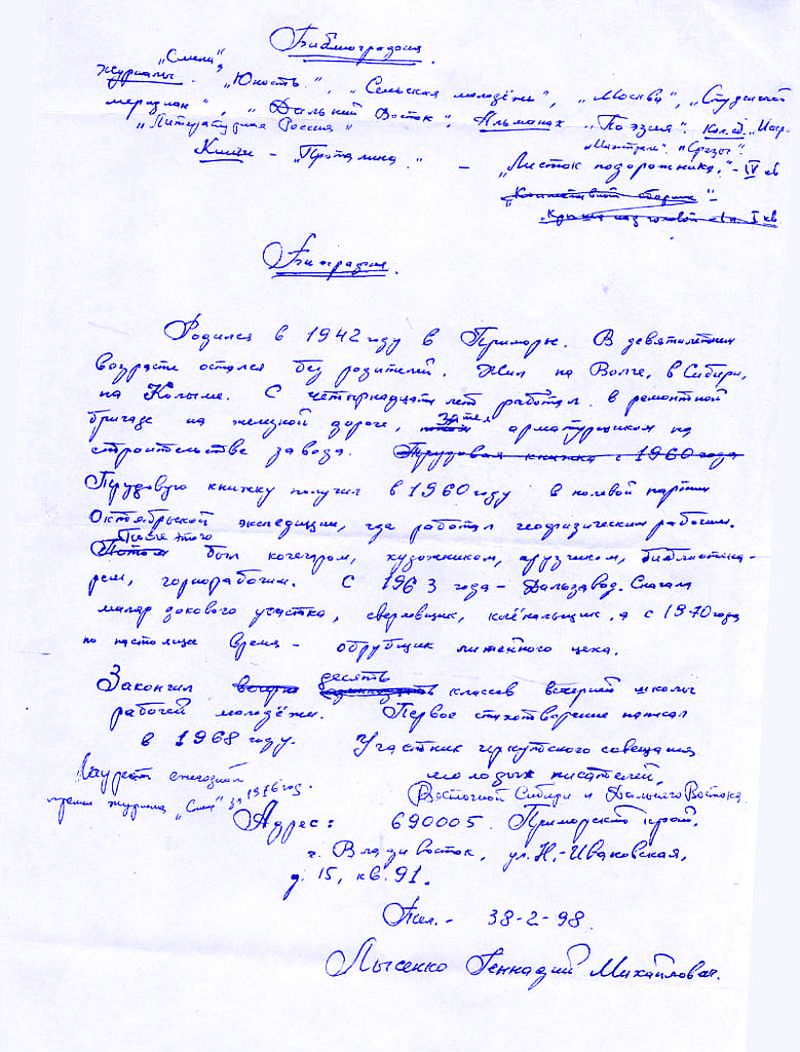 Библиография.
„Смена",
Журналы: „Юность", „Сельская молодёжь", „Москва", „Студенческий
меридиан", „Дальний Восток". Альманах „Поэзия". Кол. сб.
„Литературная Россия"
Книги – „Проталина." – „Листок подорожника." – IV кв
„Коллективный сборник" –
„Крыша над головой" I кв
Биография.
Родился в 1942 году в Приморье. В девятилетнем
возрасте остался без родителей. Жил на Волге, в Сибири,
на Колыме. С четырнадцати лет работал в ремонтной
бригаде на железной дороге, затем арматурщиком на
строительстве завода. Трудовая книжка с 1960 года
Трудовую книжку получил в 1960 году в полевой партии
Октябрьской экспедиции, где работал геофизическим рабочим.
После этого
Потом был кочегаром, художником, грузчиком, библиотека-
рем, горнорабочим. С 1963 года – Дальзавод. Сначала
маляр докового участка, сверловщик, клёпальщик, а с 1970 года
по настоящее время – обрубщик литейного цеха.
Закончил десять классов вечерней школы
рабочей молодёжи. Первое стихотворение написал
в 1968 году. Участник иркутского совещания
молодых писателей,
Восточной Сибири и Дальнего Востока.
Лауреат ежегодной
премии журнала „Смена" за 1976 год.
Адрес: 690005. Приморский край,
г. Владивосток, ул. Н.-Ивановская,
д. 15, кв. 91.
Тел. – 38-2-98.
Лысенко Геннадий Михайлович.